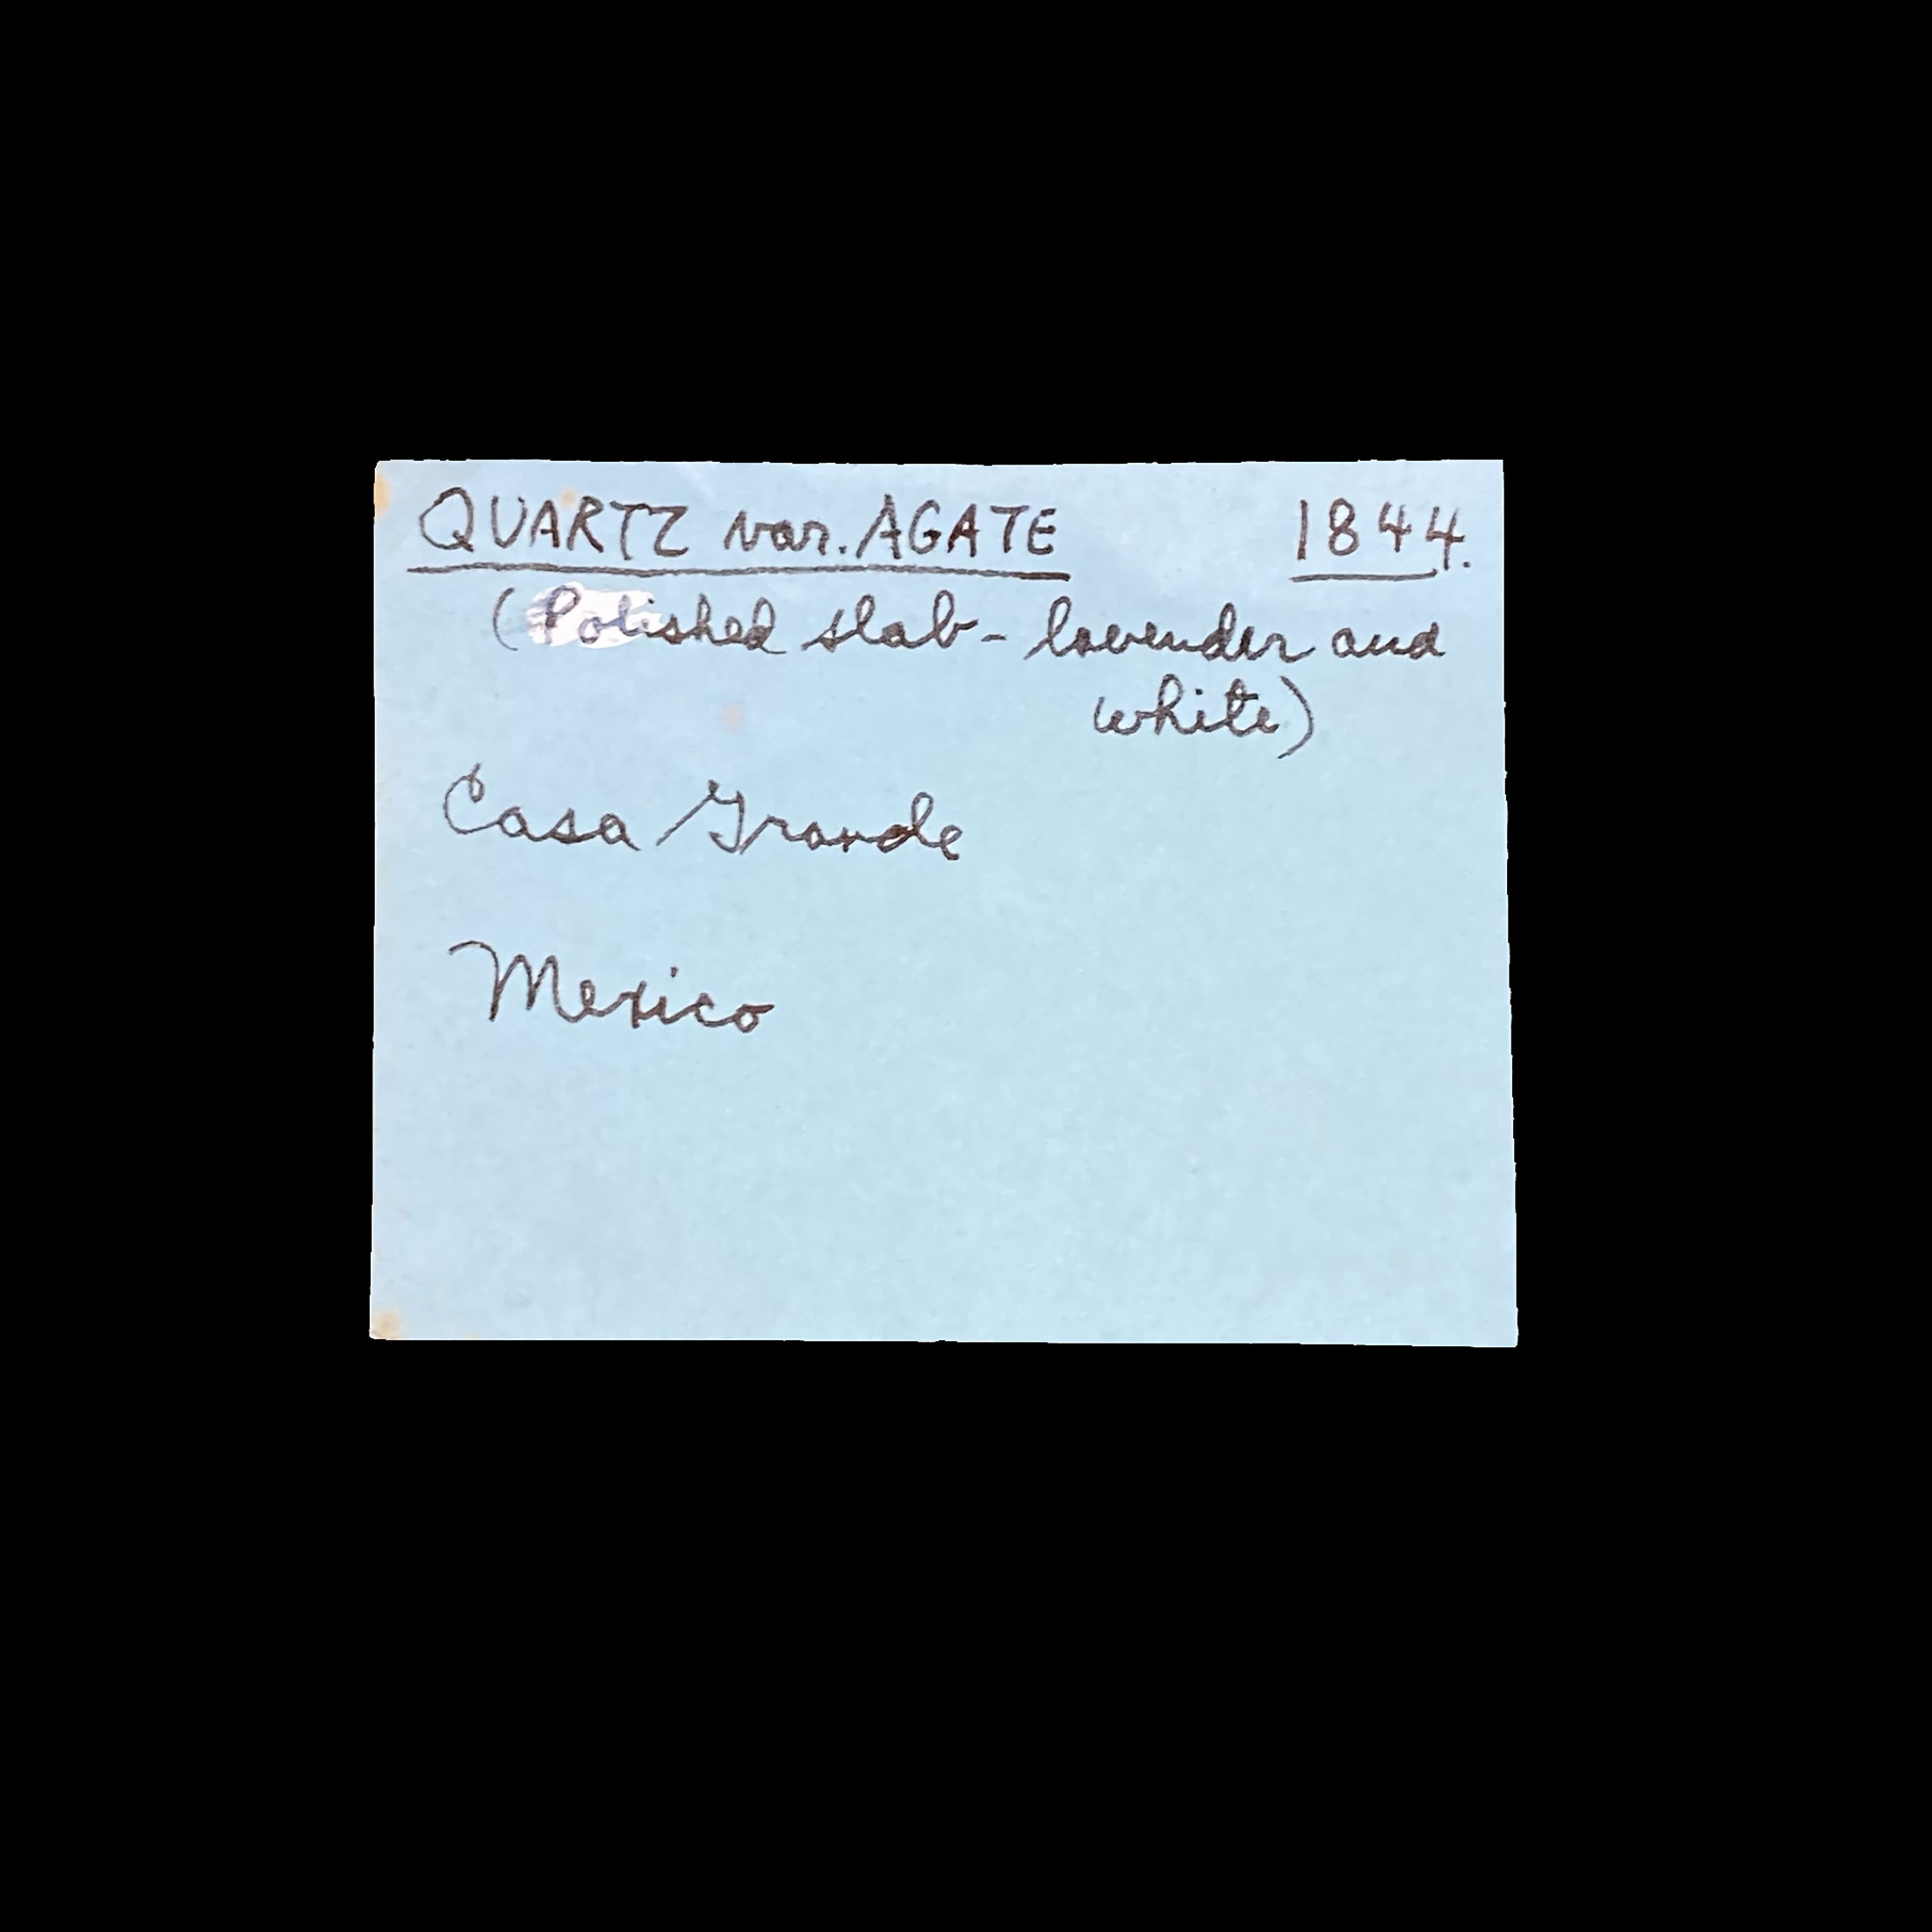 QUARTZ var. AGATE 1844.
(Polished slab - lavender and
white)
Casa Grande
Mexico